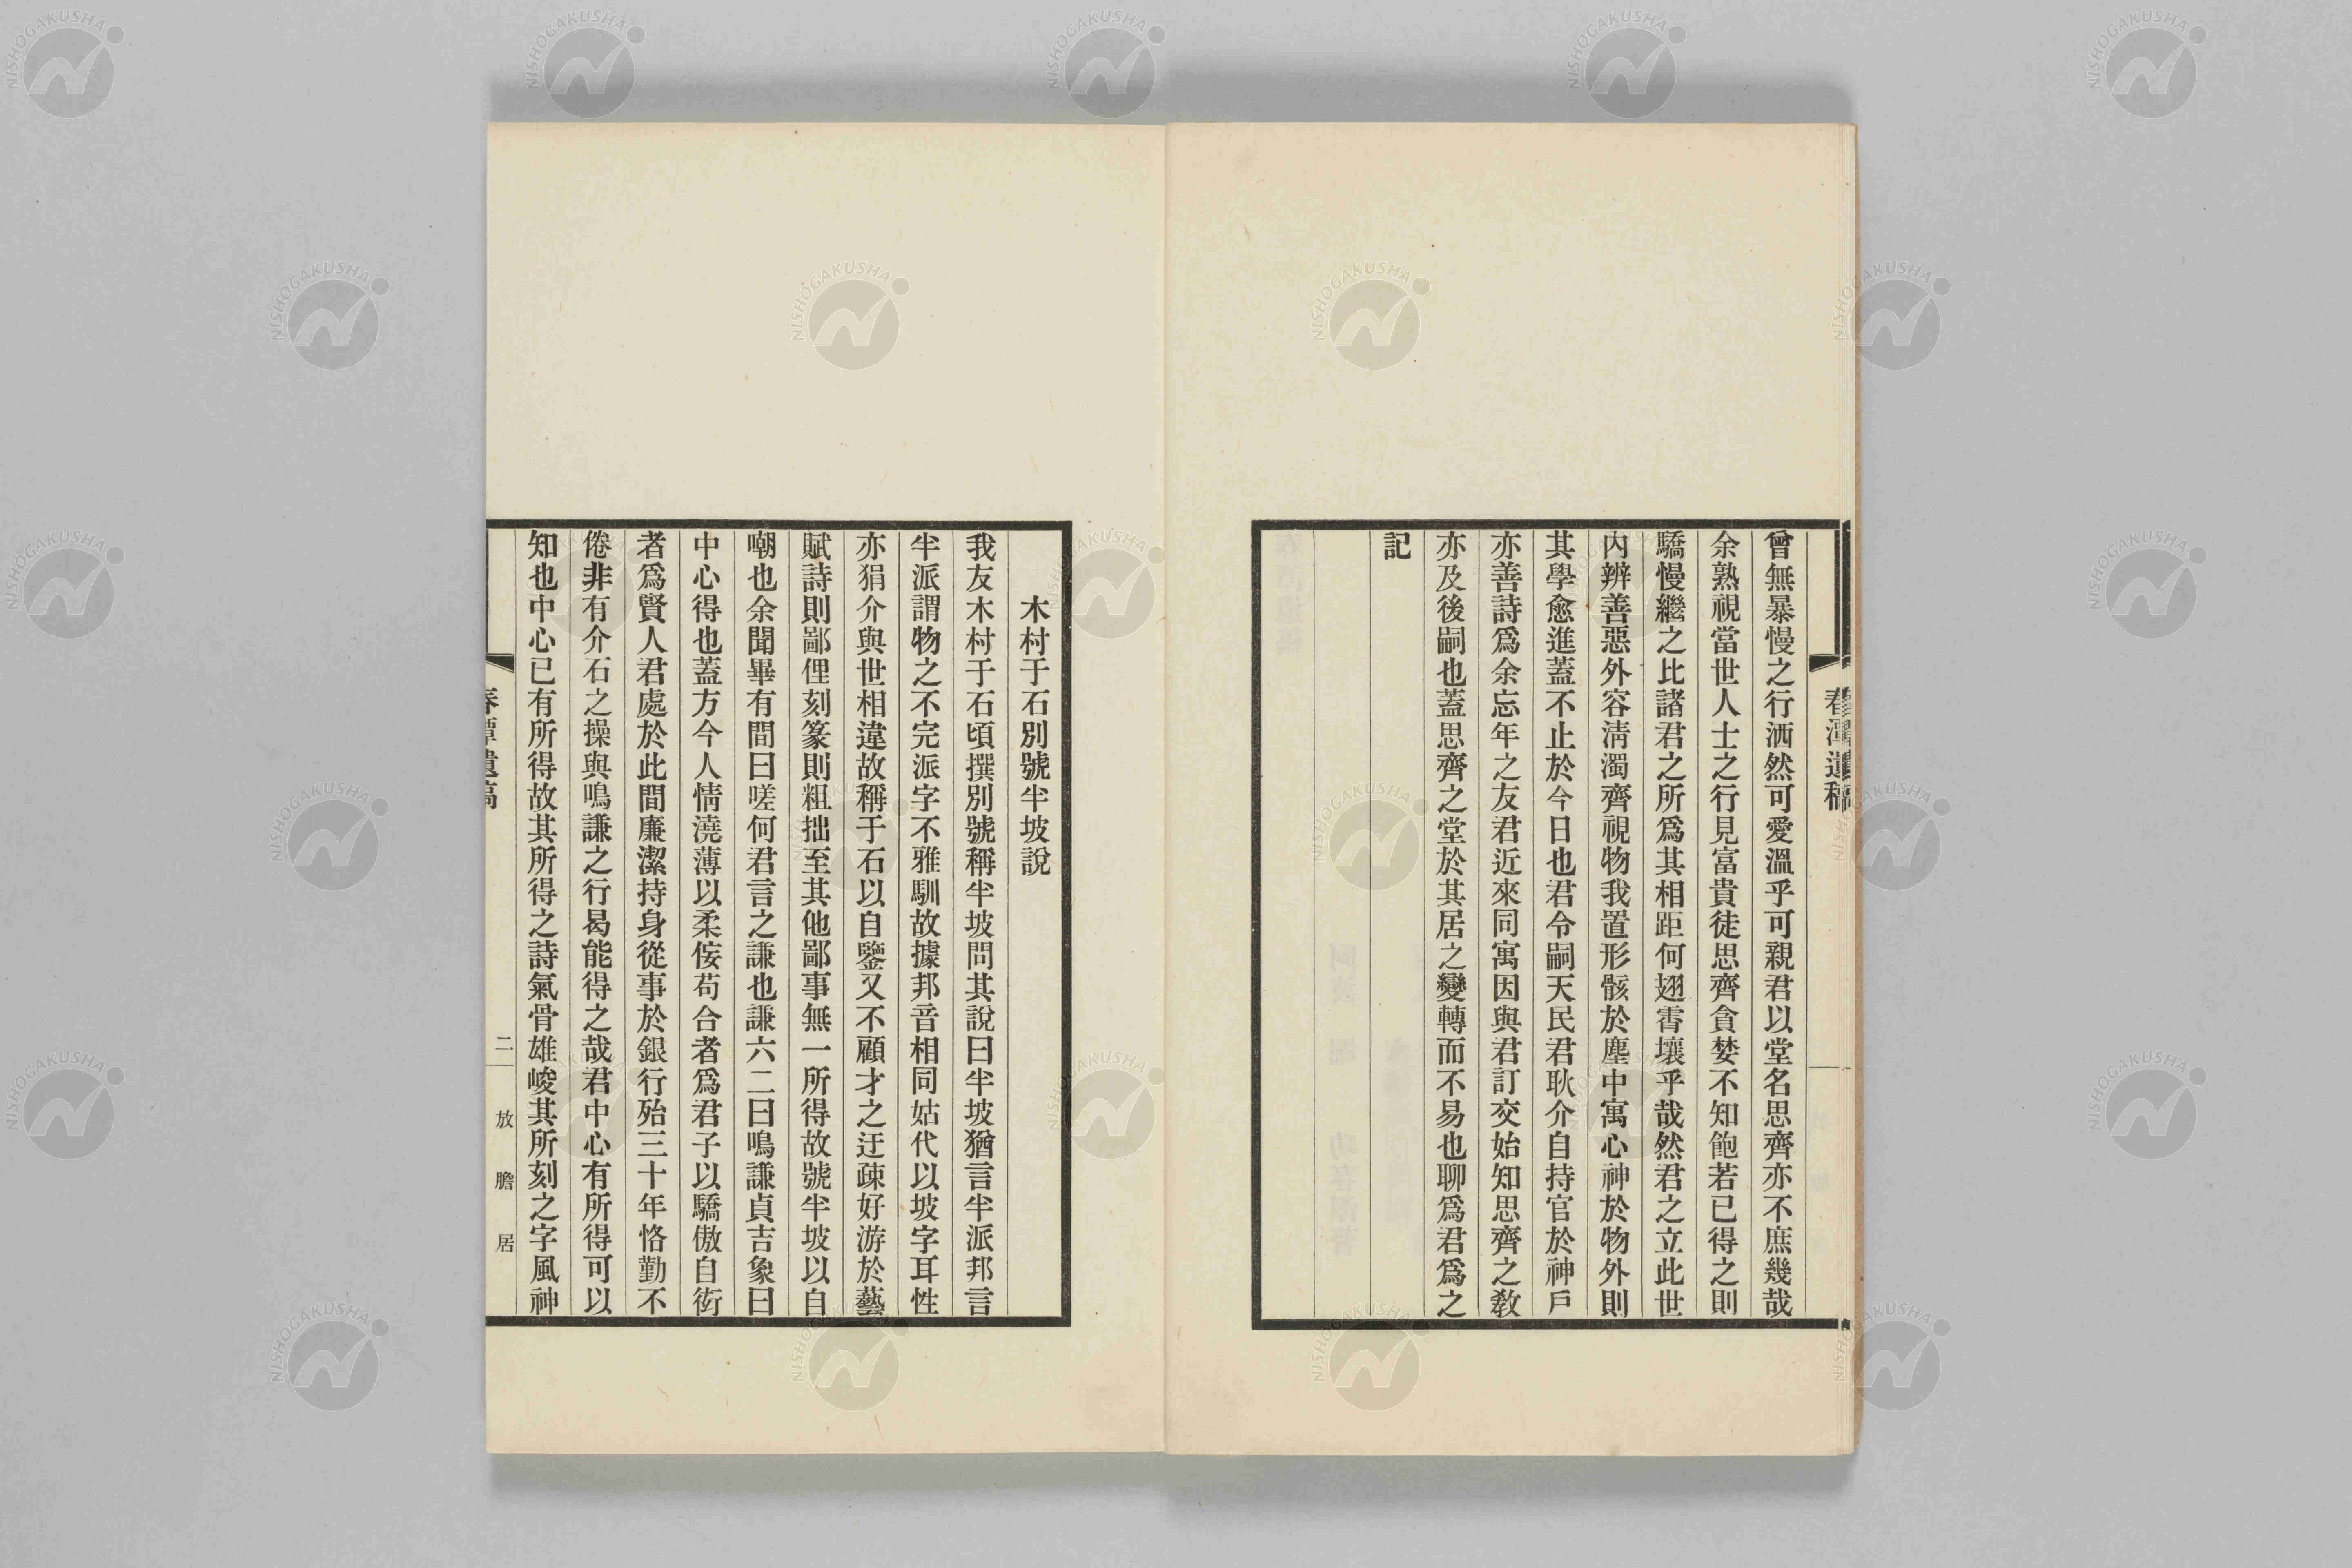 曾無暴慢之行洒然可愛溫乎可親君以堂名思齊亦不庶幾哉
余熟視當世人士之行見富貴徒思齊貪婪不知飽若已得之則
驕慢繼之比諸君之所爲其相距何翅霄壤乎哉然君之立此世
內辨善惡外容淸濁齊視物我置形骸於塵中寓心神於物外則
其學愈進蓋不止於今日也君令嗣天民君耿介自持官於神戶
亦善詩爲余忘年之友君近來同寓因與君訂交始知思齊之教
亦及後嗣也蓋思齊之堂於其居之變轉而不易也聊爲君爲之
記
春潭遺稿
木村于石別號半坡說
我友木村于石頃撰別號稱半坡問其說曰半坡猶言半派邦言
半派謂物之不完派字不雅馴故據邦音相同姑代以坡字耳性
亦狷介與世相違故稱于石以自鑒又不顧才之迂疎好游於藝
賦詩則鄙俚刻篆則粗拙至其他鄙事無一所得故號半坡以自
嘲也余聞畢有間曰嗟何君言之謙也謙六二曰鳴謙貞吉象曰
中心得也蓋方今人情澆薄以柔侫苟合者爲君子以驕傲自衒
者爲賢人君處於此間廉潔持身從事於銀行殆三十年恪勤不
倦非有介石之操與鳴謙之行曷能得之哉君中心有所得可以
知也中心已有所得故其所得之詩氣骨雄峻其所刻之字風神
春潭遺稿
二
放膽居
NISHOGAKUSHA